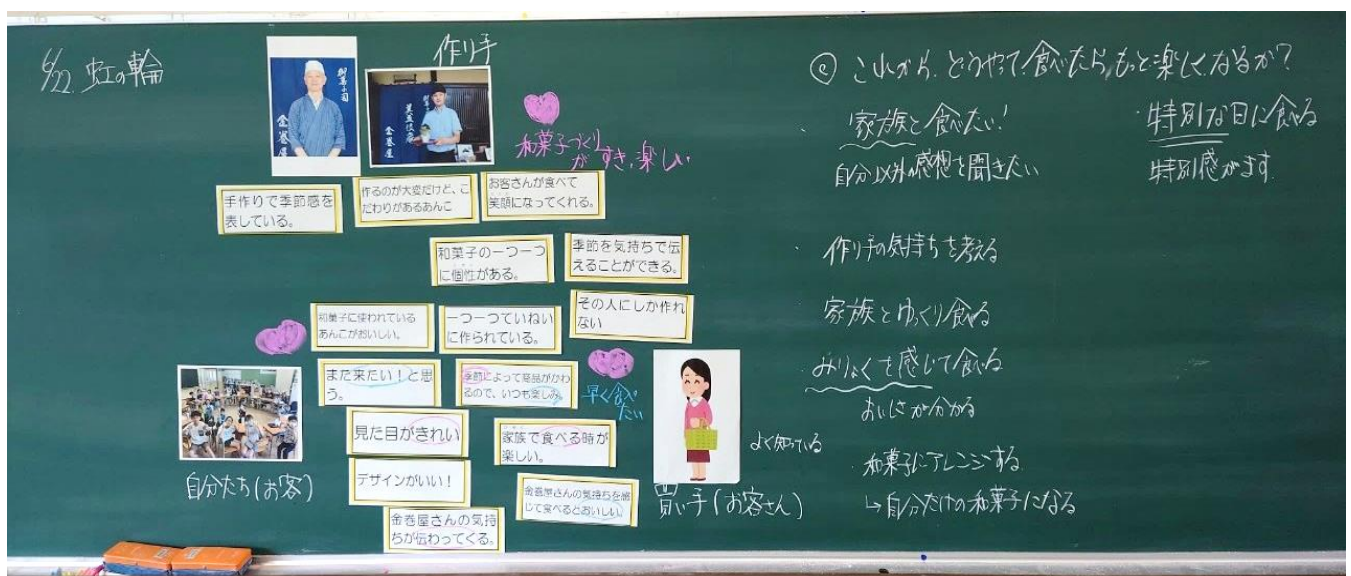 6/22. 虹の輪
作り手
和菓子づくり
がすき、楽しい
手作りで季節感を
表している。
作るのが大変だけど、こ
だわりがあるあんこ
お客さんが食べて
笑顔になってくれる。
和菓子の一つ一つ
に個性がある。
季節を気持ちで伝
えることができる。
和菓子に使われている
あんこがおいしい。
一つ一つていねい
に作られている。
その人にしか作れ
ない
また来たい！と思
う。
季節によって商品がかわ
るので、いつも楽しみ。
早く食べ
たい
見た目がきれい
家族で食べる時が
楽しい。
デザインがいい！
金巻屋さんの気持ちを感
じて食べるとおいしい。
金巻屋さんの気持
ちが伝わってくる。
自分たち(お客)
買い手(お客さん)
よく知っている
これから、どうやって食べたら、もっと楽しくなるか？
・家族と食べたい！
自分以外の感想を聞きたい
・作り手の気持ちを考える
家族とゆっくり食べる
みりょくを感じて食べる
おいしさが分かる
・和菓子にアレンジする
↳自分だけの和菓子になる
・特別な日に食べる
特別感がます
金巻屋
金巻屋